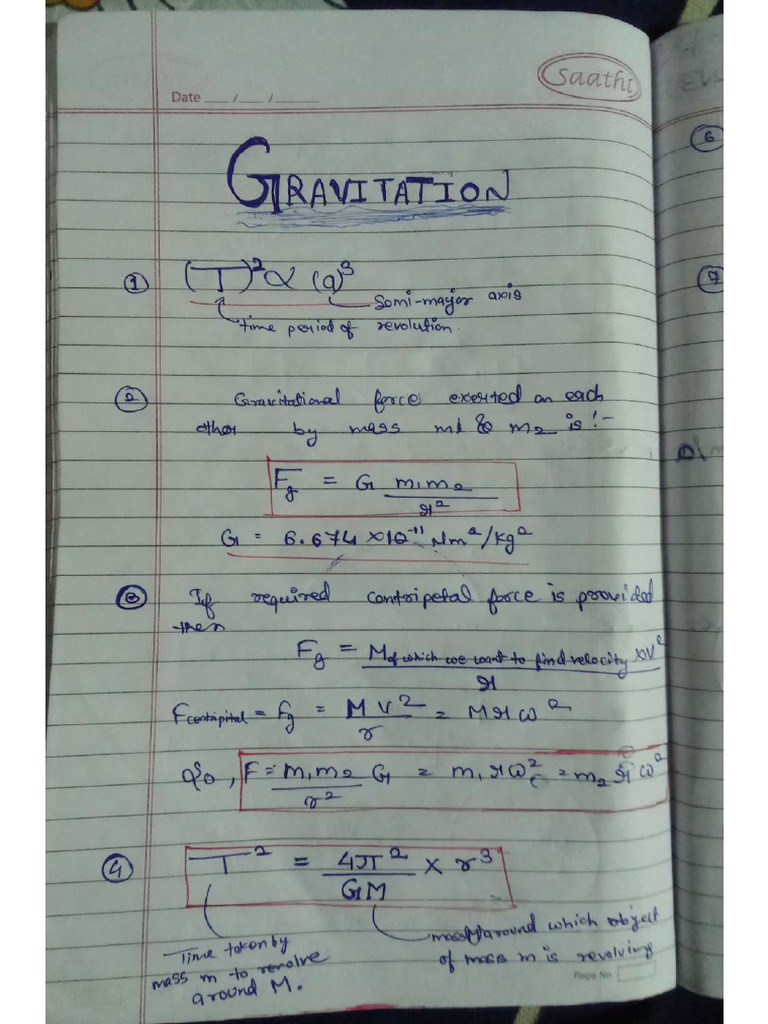 Saathi
Date __/__/____
GRAVITATION
① (T)² ∝ (a)³
Semi-mayor axis
time period of revolution.
② Gravitational force exerted on each
other by mass m1 & m2 is :-
Fg = G m1m2 / r²
G = 6.674 × 10⁻¹¹ Nm²/kg²
③ If required centripetal force is provided
then
Fg = M of which we want to find velocity × V² / r
F centripital = Fg = MV² / r = Mrω²
F = m1m2 / r² G = m1 rω² = m2 ω²
④ T² = 4π² / GM × r³
Time taken by
mass m to revolve
around M.
mass M around which object
of mass m is revolving
Page No
6
7